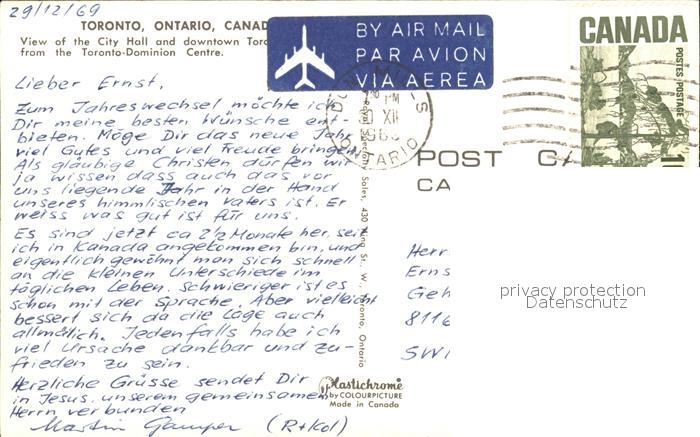 29/12/69
TORONTO, ONTARIO, CANAD
View of the City Hall and downtown Toro
from the Toronto-Dominion Centre.
BY AIR MAIL
PAR AVION
VIA AEREA
CANADA
POSTES POSTAGE
PM
XII
ONTARIO
POST CA
CA
Lieber Ernst,
Zum Jahreswechsel möchte ich
Dir meine besten Wünsche ent-
bieten. Möge Dir das neue Jahr
viel Gutes und viel Freude bringen.
Als gläubige Christen dürfen wir
ja wissen dass auch das vor
uns liegende Jahr in der Hand
unseres himmlischen Vaters ist. Er
weiss was gut ist für uns.
Es sind jetzt ca 2½ Monate her, seit
ich in Kanada angekommen bin, und
eigentlich gewöhnt man sich schnell
an die kleinen Unterschiede im
täglichen Leben. Schwieriger ist es
schon mit der Sprache. Aber vielleicht
bessert sich da die Lage auch
allmälich. Jedenfalls habe ich
viel Ursache dankbar und zu-
frieden zu sein.
Herzliche Grüsse sendet Dir
in Jesus, unserem gemeinsamen
Herrn verbunden
Martin Gamper (R+Kol)
Sales, 430 King St., W., Toronto, Ontario
Plastichrome
by COLOURPICTURE
Made in Canada
Herr
Erns
Geh
8116
SWI
privacy protection
Datenschutz